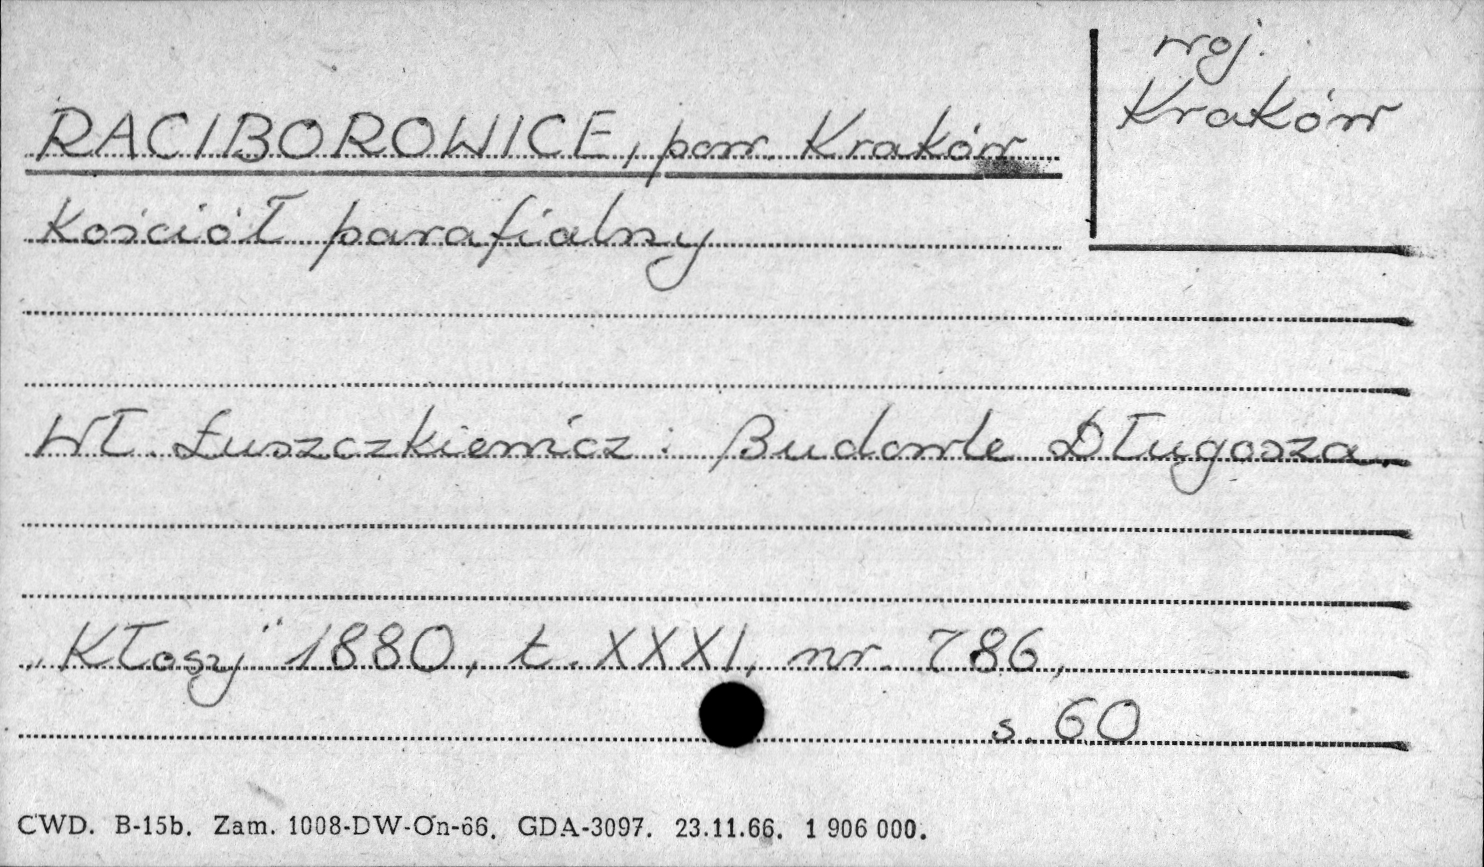 woj.
Kraków
RACIBOROWICE, pow. Kraków
Kościół parafialny
Wł. Łuszczkiewicz: Budowle Długosza.
„Kłosy" 1880, t. XXXI, nr. 786,
s. 60
CWD. B-15b. Zam. 1008-DW-On-66. GDA-3097. 23.11.66. 1 906 000.